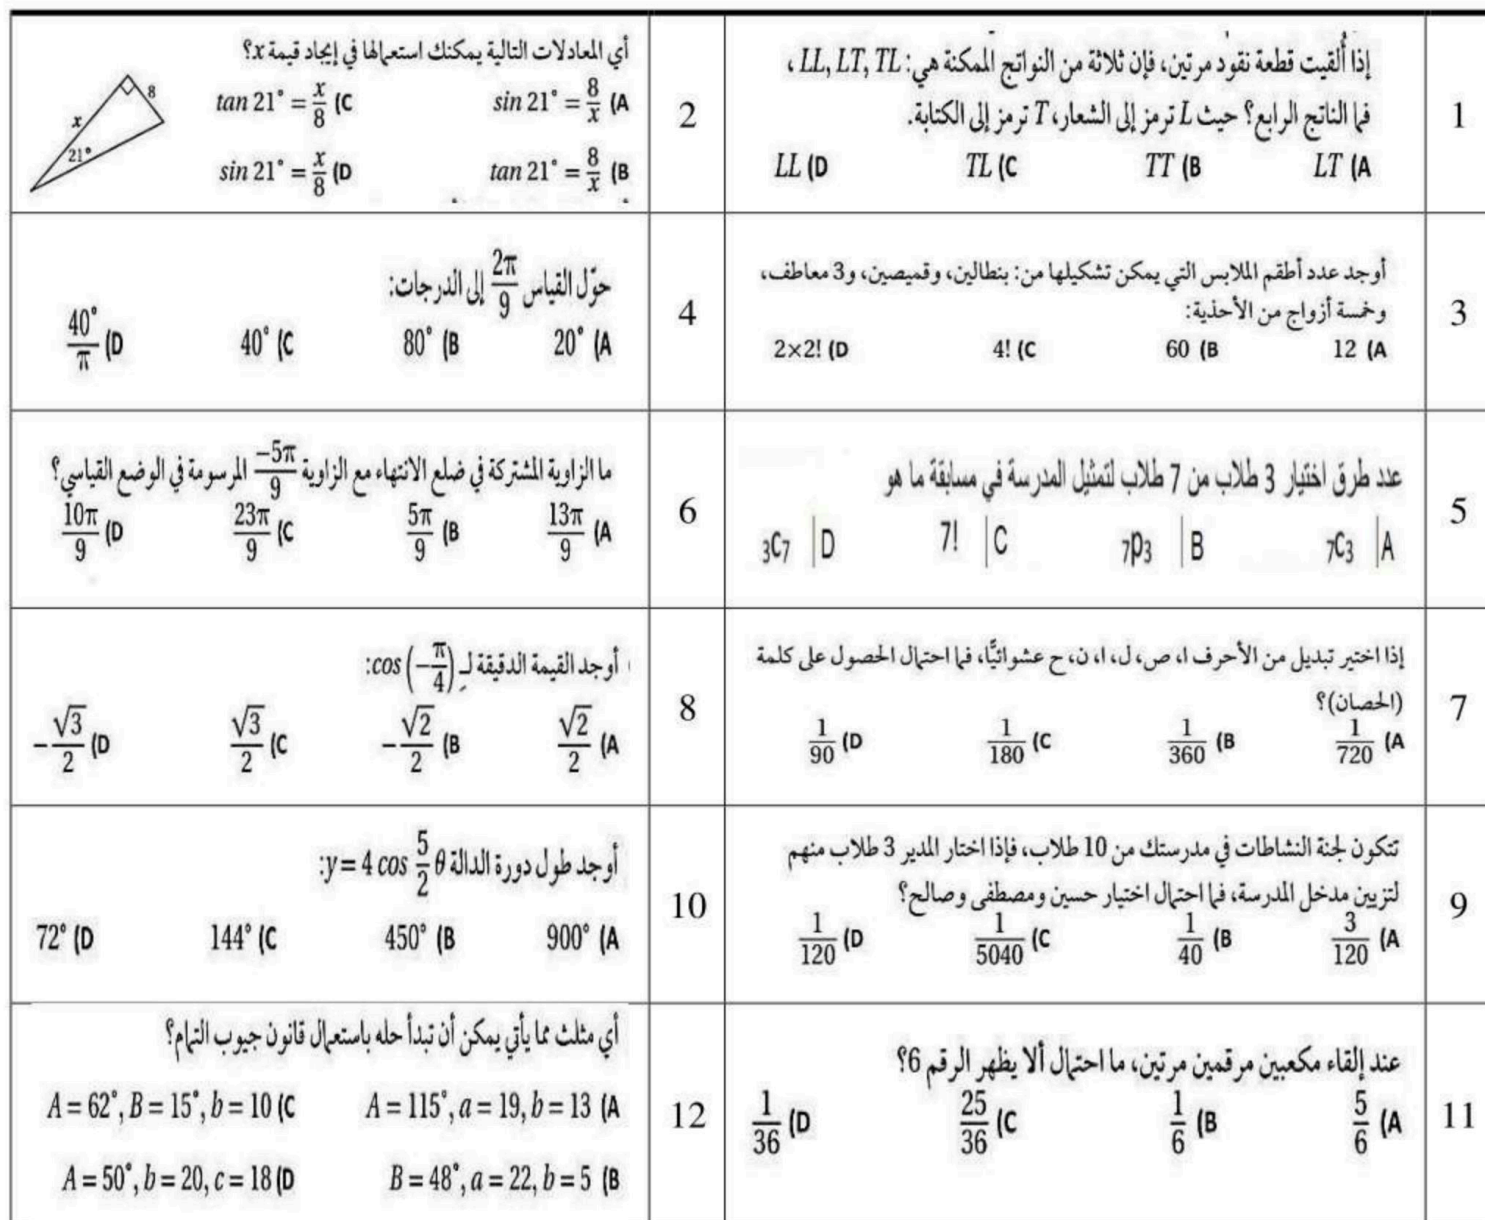 1
إذا أُلقيت قطعة نقود مرتين، فإن ثلاثة من النواتج الممكنة هي: LL, LT, TL ،
فما الناتج الرابع؟ حيث L ترمز إلى الشعار، T ترمز إلى الكتابة.
A) LT B) TT C) TL D) LL
2
أي المعادلات التالية يمكنك استعمالها في إيجاد قيمة x؟
A) sin 21° = 8/x C) tan 21° = x/8
B) tan 21° = 8/x D) sin 21° = x/8
8
x
21°
3
أوجد عدد أطقم الملابس التي يمكن تشكيلها من: بنطالين، وقميصين، و3 معاطف،
وخمسة أزواج من الأحذية:
A) 12 B) 60 C) 4! D) 2×2!
4
حوّل القياس 2π/9 إلى الدرجات:
A) 20° B) 80° C) 40° D) 40°/π
5
عدد طرق اختيار 3 طلاب من 7 طلاب لتمثيل المدرسة في مسابقة ما هو
A| ₇C₃ B| ₇p₃ C| 7! D| ₃C₇
6
ما الزاوية المشتركة في ضلع الانتهاء مع الزاوية −5π/9 المرسومة في الوضع القياسي؟
A) 13π/9 B) 5π/9 C) 23π/9 D) 10π/9
7
إذا اختير تبديل من الأحرف ا، ص، ل، ا، ن، ح عشوائيًّا، فما احتمال الحصول على كلمة
(الحصان)؟
A) 1/720 B) 1/360 C) 1/180 D) 1/90
8
أوجد القيمة الدقيقة لـ cos(−π/4):
A) √2/2 B) −√2/2 C) √3/2 D) −√3/2
9
تتكون لجنة النشاطات في مدرستك من 10 طلاب، فإذا اختار المدير 3 طلاب منهم
لتزيين مدخل المدرسة، فما احتمال اختيار حسين ومصطفى وصالح؟
A) 3/120 B) 1/40 C) 1/5040 D) 1/120
10
أوجد طول دورة الدالة y = 4 cos 5/2 θ:
A) 900° B) 450° C) 144° D) 72°
11
عند إلقاء مكعبين مرقمين مرتين، ما احتمال ألا يظهر الرقم 6؟
A) 5/6 B) 1/6 C) 25/36 D) 1/36
12
أي مثلث مما يأتي يمكن أن تبدأ حله باستعمال قانون جيوب التمام؟
A) A = 115°, a = 19, b = 13 C) A = 62°, B = 15°, b = 10
B) B = 48°, a = 22, b = 5 D) A = 50°, b = 20, c = 18